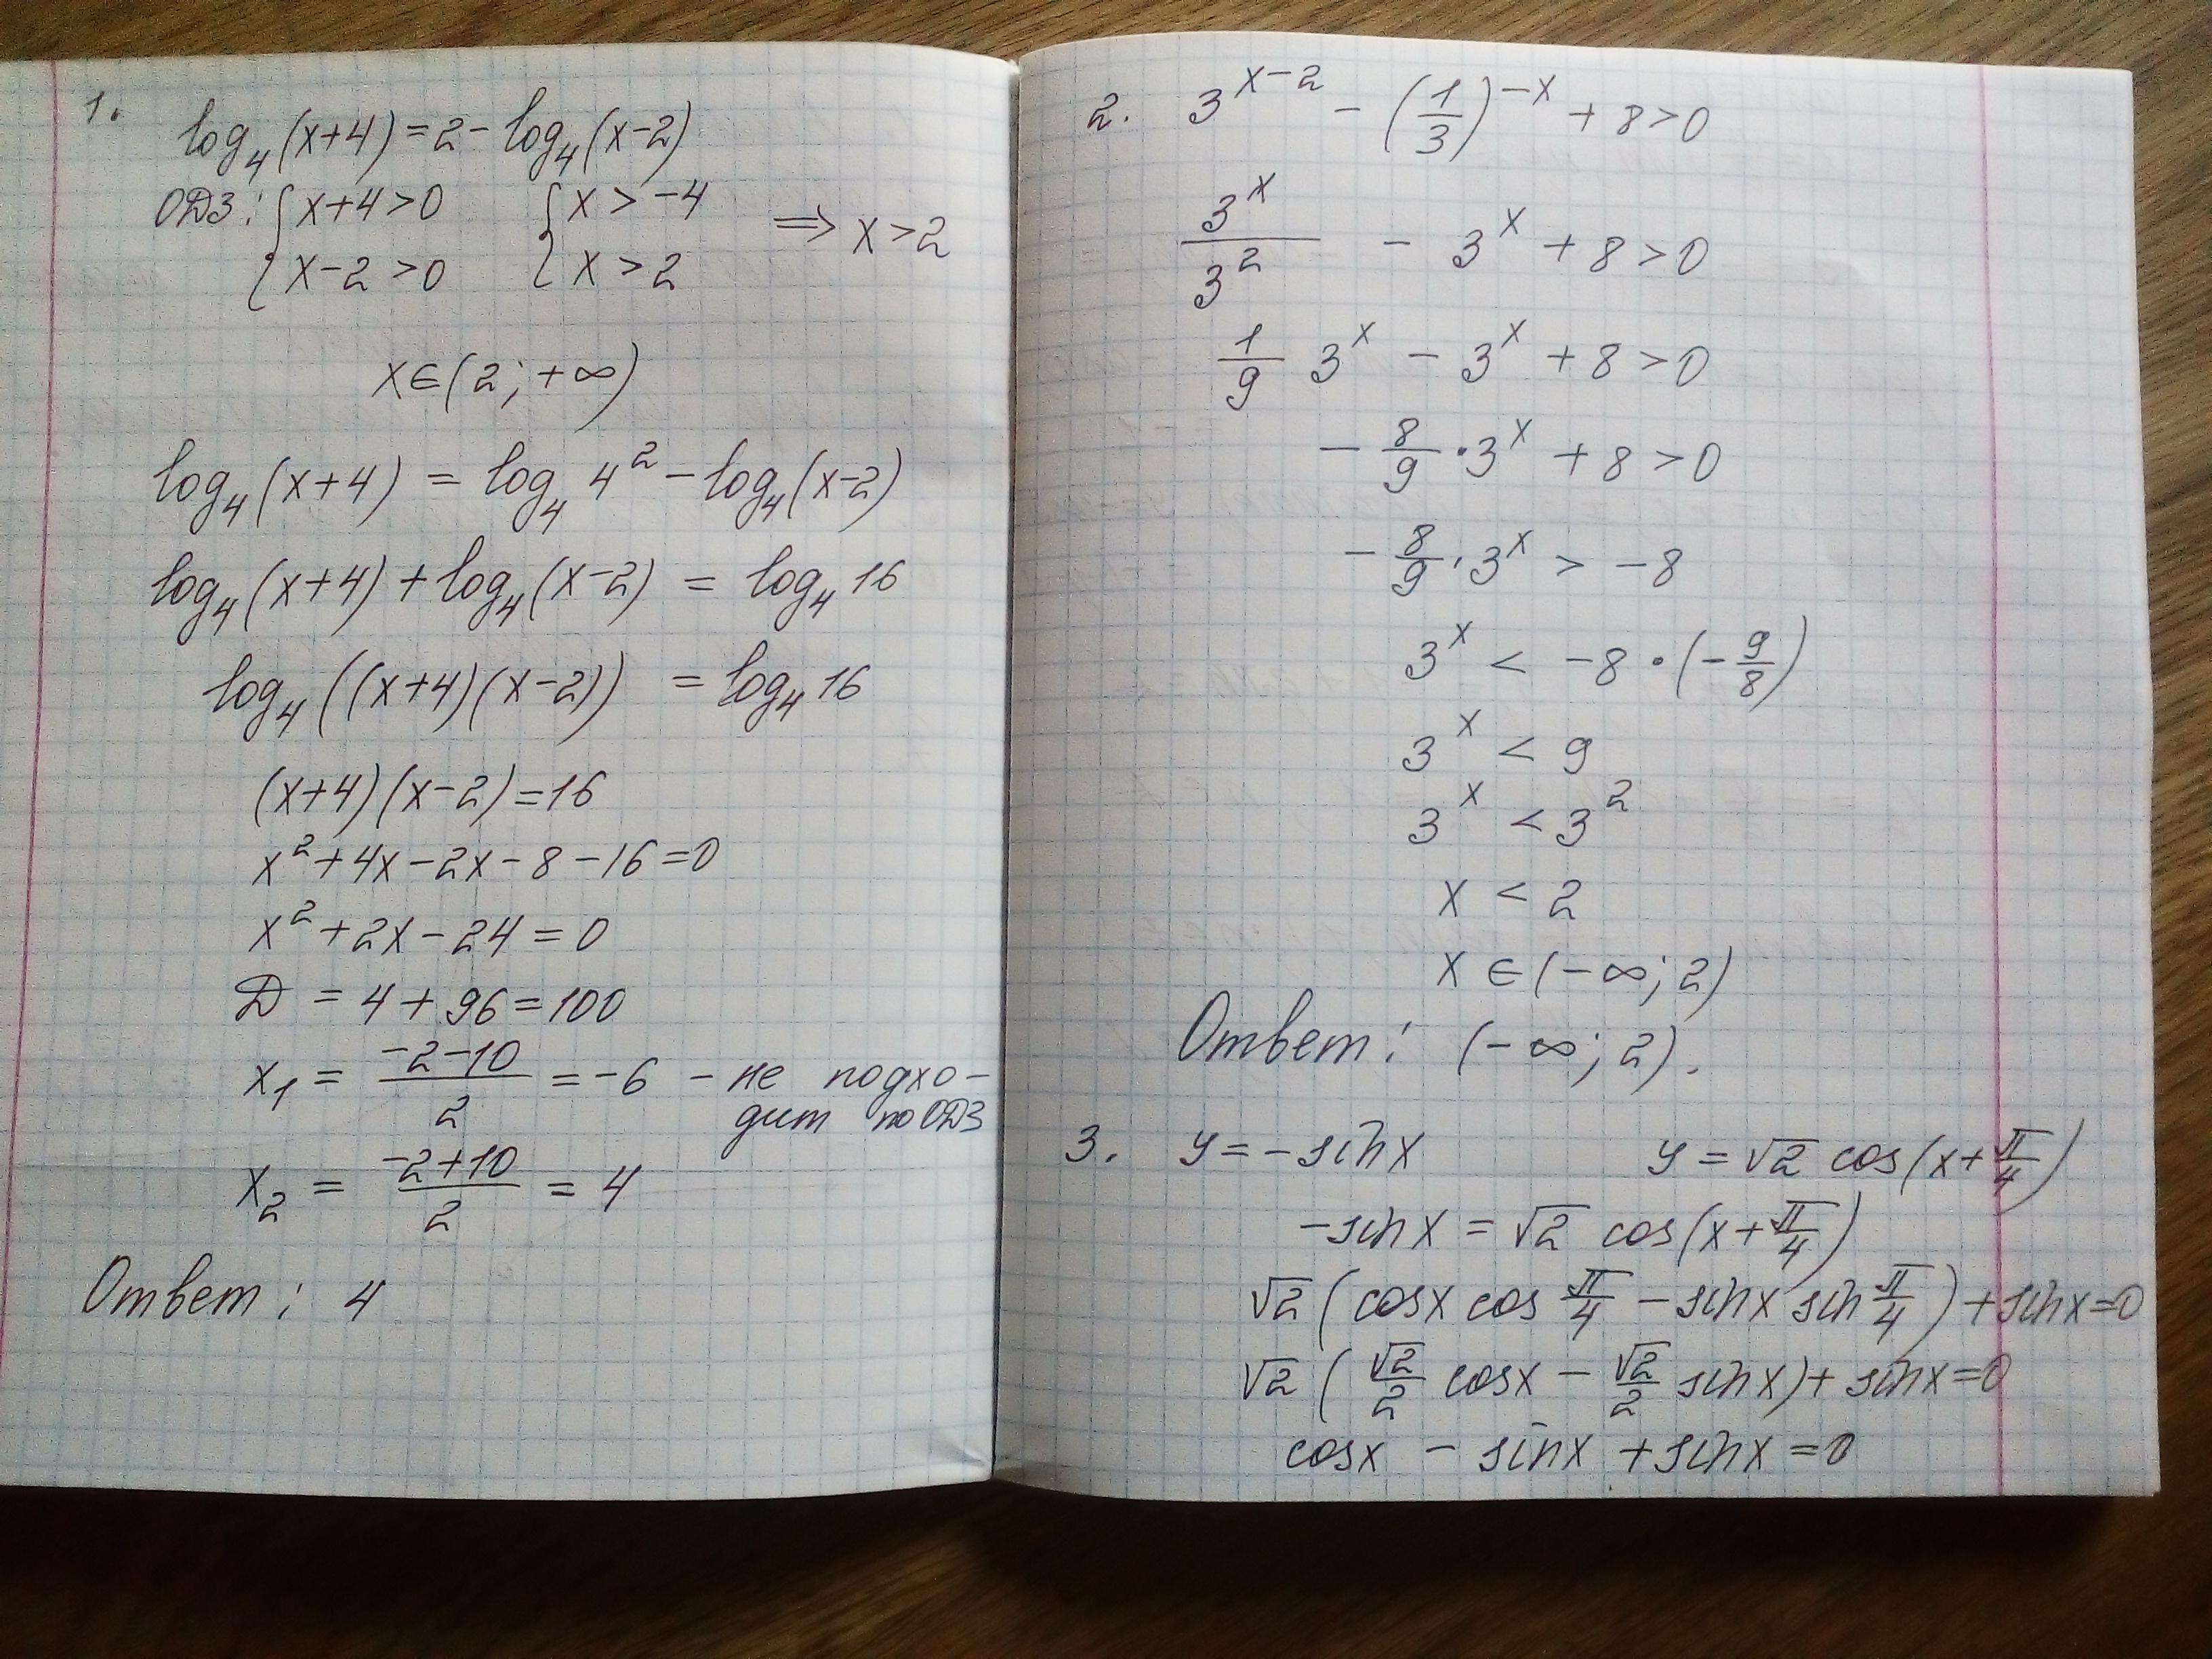 1.
log₄(x+4)=2-log₄(x-2)
ОДЗ: { x+4>0 { x>-4 ⇒ x>2
{ x-2>0 { x>2
x∈(2;+∞)
log₄(x+4) = log₄ 4² - log₄(x-2)
log₄(x+4)+log₄(x-2) = log₄ 16
log₄((x+4)(x-2)) = log₄ 16
(x+4)(x-2)=16
x²+4x-2x-8-16=0
x²+2x-24=0
Д = 4+96=100
x₁ = (-2-10)/2 = -6 - не подхо-
дит по ОДЗ
x₂ = (-2+10)/2 = 4
Ответ: 4
2. 3^(x-2) - (1/3)^(-x) + 8>0
3^x/3² - 3^x + 8>0
1/9 3^x - 3^x + 8>0
-8/9·3^x + 8>0
-8/9·3^x > -8
3^x < -8·(-9/8)
3^x < 9
3^x < 3²
x < 2
x∈(-∞;2)
Ответ: (-∞;2).
3. y=-sin x y=√2 cos(x+π/4)
-sin x = √2 cos(x+π/4)
√2(cosx cos π/4 - sinx sin π/4)+sinx=0
√2(√2/2 cosx - √2/2 sinx)+sinx=0
cosx - sinx + sinx = 0